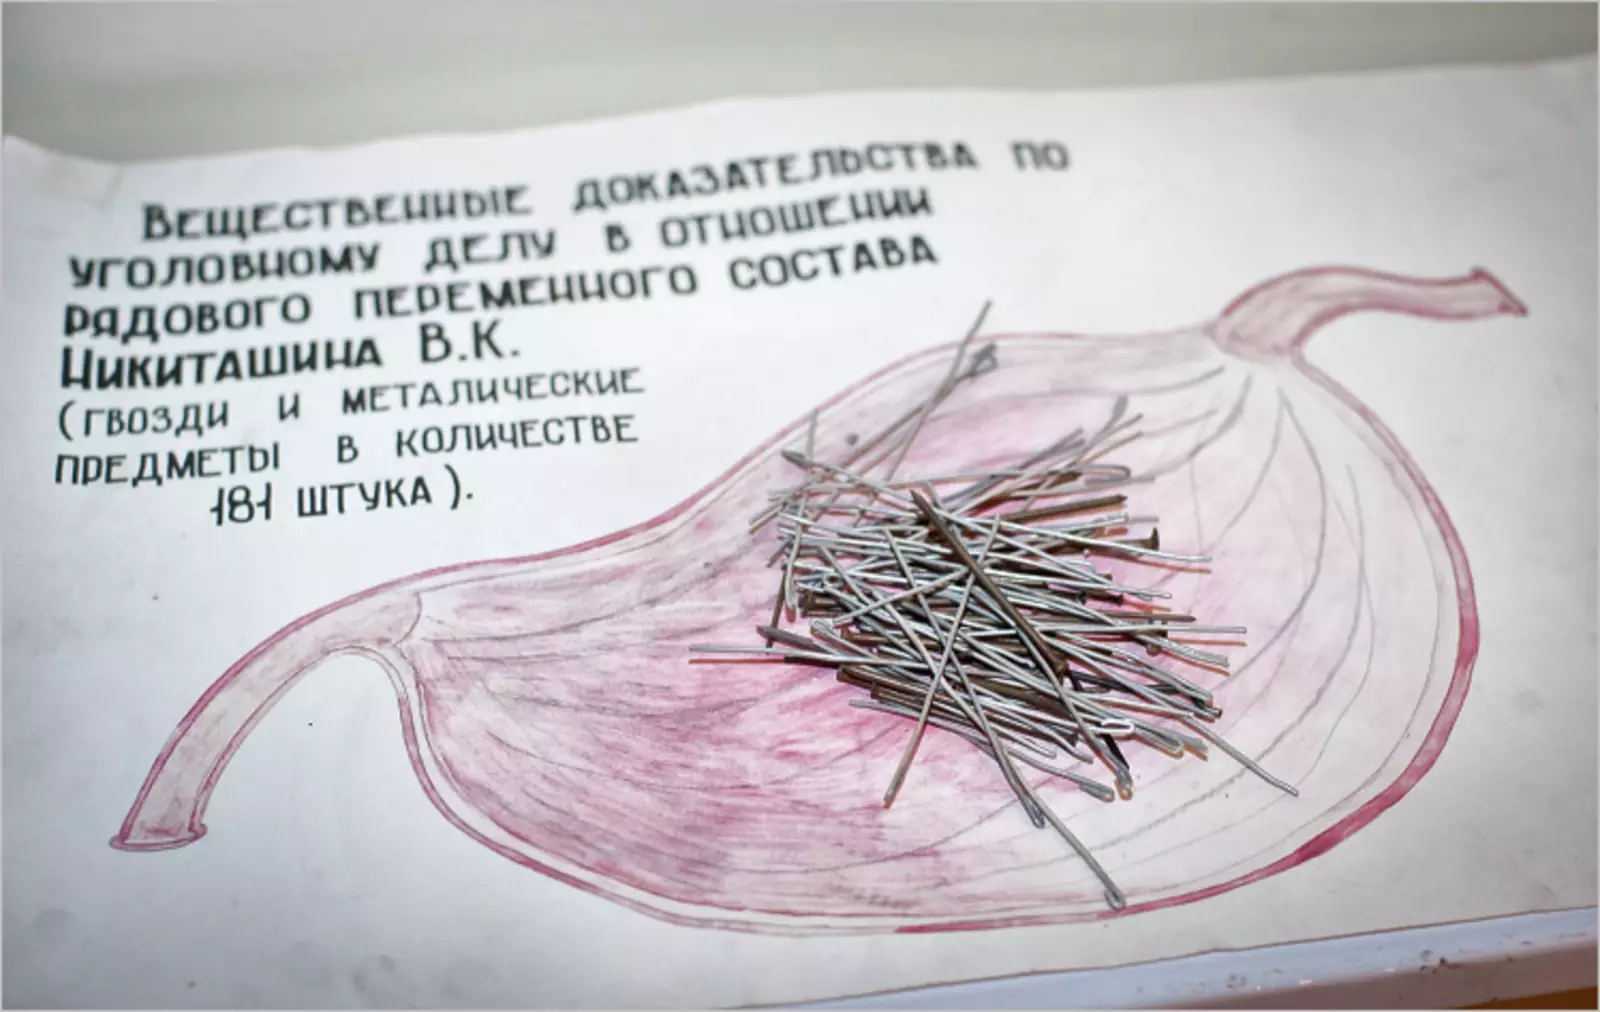 Вещественные доказательства по
уголовному делу в отношении
рядового переменного состава
Никиташина В.К.
(гвозди и металические
предметы в количестве
181 штука).